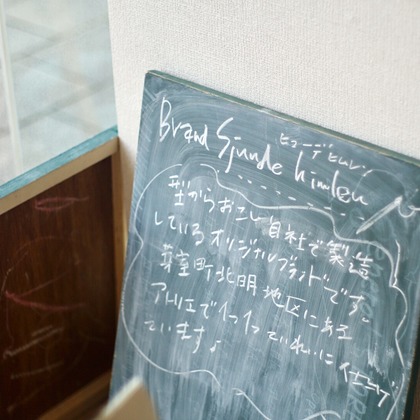 Brand Sjunde himlen
ヒューデ ヒムレン
型からおこし自社で製造
しているオリジナルブランドです。
芽室町北明地区にある
アトリエで1つ1つていねいに仕上げ
ています♪